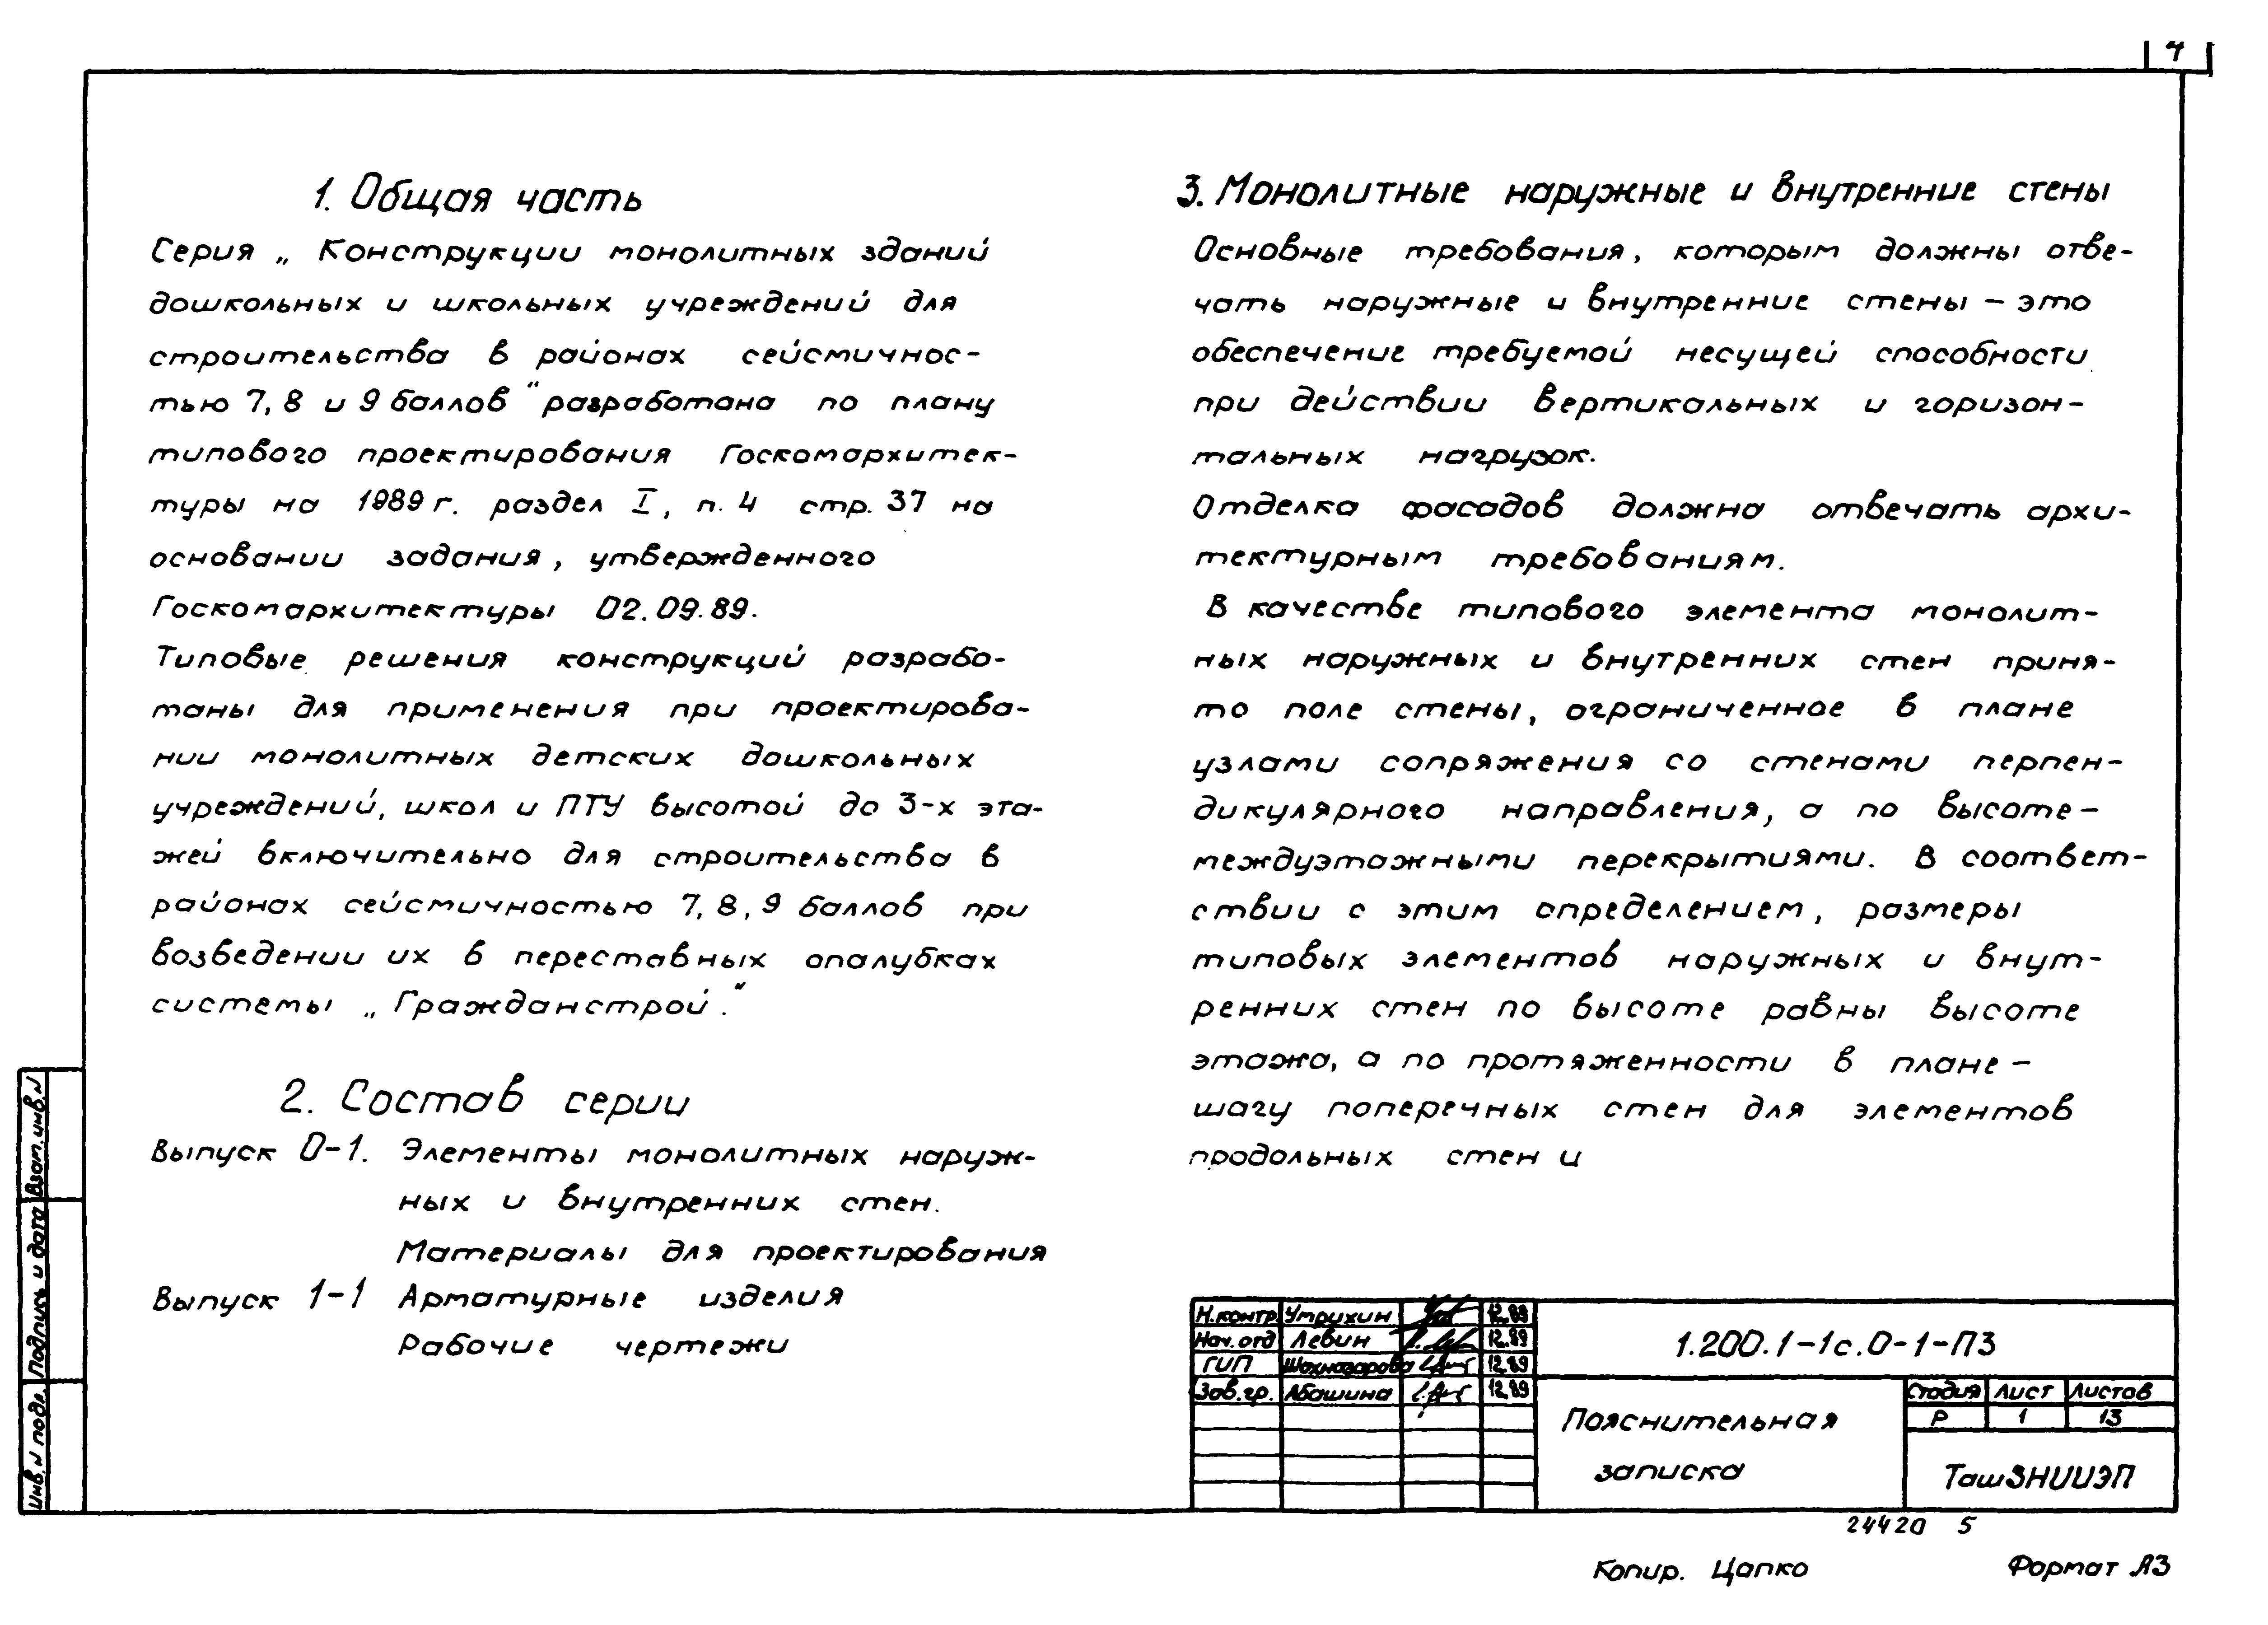 4
1. Общая часть
Серия „Конструкции монолитных зданий
дошкольных и школьных учреждений для
строительства в районах сейсмичнос-
тью 7, 8 и 9 баллов“ разработана по плану
типового проектирования Госкомархитек-
туры на 1989 г. раздел I, п. 4 стр. 37 на
основании задания, утвержденного
Госкомархитектуры 02.09.89.
Типовые решения конструкций разрабо-
таны для применения при проектирова-
нии монолитных детских дошкольных
учреждений, школ и ПТУ высотой до 3-х эта-
жей включительно для строительства в
районах сейсмичностью 7, 8, 9 баллов при
возведении их в переставных опалубках
системы „Гражданстрой“.
2. Состав серии
Выпуск 0-1. Элементы монолитных наруж-
ных и внутренних стен.
Материалы для проектирования
Выпуск 1-1 Арматурные изделия
Рабочие чертежи
3. Монолитные наружные и внутренние стены
Основные требования, которым должны отве-
чать наружные и внутренние стены – это
обеспечение требуемой несущей способности
при действии вертикальных и горизон-
тальных нагрузок.
Отделка фасадов должна отвечать архи-
тектурным требованиям.
В качестве типового элемента монолит-
ных наружных и внутренних стен приня-
то поле стены, ограниченное в плане
узлами сопряжения со стенами перпен-
дикулярного направления, а по высоте –
междуэтажными перекрытиями. В соответ-
ствии с этим определением, размеры
типовых элементов наружных и внут-
ренних стен по высоте равны высоте
этажа, а по протяженности в плане –
шагу поперечных стен для элементов
продольных стен и
Н.контр Утрихин 12.89
Нач.отд Левин 12.89
ГИП Шахназарова 12.89
Зав.гр. Абашина 12.89
1.200.1-1с.0-1-ПЗ
Пояснительная
записка
Стадия Лист Листов
Р 1 13
ТашЗНИИЭП
24420 5
Копир. Цапко Формат А3
Взам.инв.N
Подпись и дата
Инв.N подл.